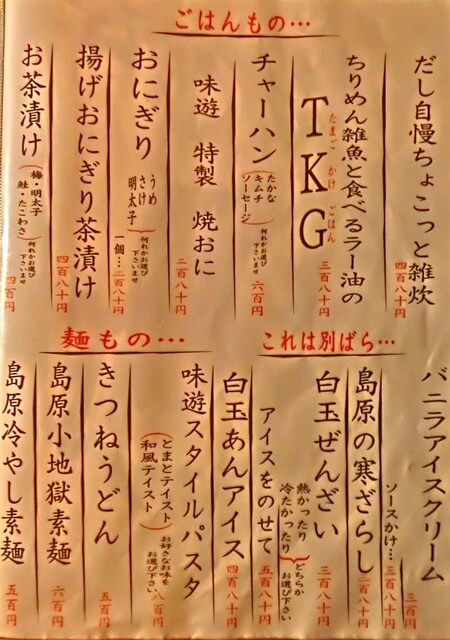 ごはんもの…
だし自慢ちょこっと雑炊
四百八十円
ちりめん雑魚と食べるラー油の
TKG
たまご かけ ごはん
三百八十円
チャーハン
たかな
キムチ
ソーセージ
何れかお選び
下さいませ
六百円
味遊 特製 焼おに
二百八十円
おにぎり
うめ
さけ
明太子
何れかお選び
下さいませ
一個…二百八十円
揚げおにぎり茶漬け
四百八十円
お茶漬け
(梅・明太子
鮭・たこわさ)
何れかお選び
下さいませ
四百円
これは別ばら…
バニラアイスクリーム
三百円
ソースかけ…
三百八十円
島原の寒ざらし
二百八十円
白玉ぜんざい
熱かったり
冷たかったり
どちらか
お選び下さい
三百八十円
アイスをのせて
五百八十円
白玉あんアイス
四百八十円
麺もの…
味遊スタイルパスタ
(とまとテイスト
和風テイスト)
お好きなお味を
お選び下さい
八百円
きつねうどん
五百円
島原小地獄素麺
六百円
島原冷やし素麺
五百円